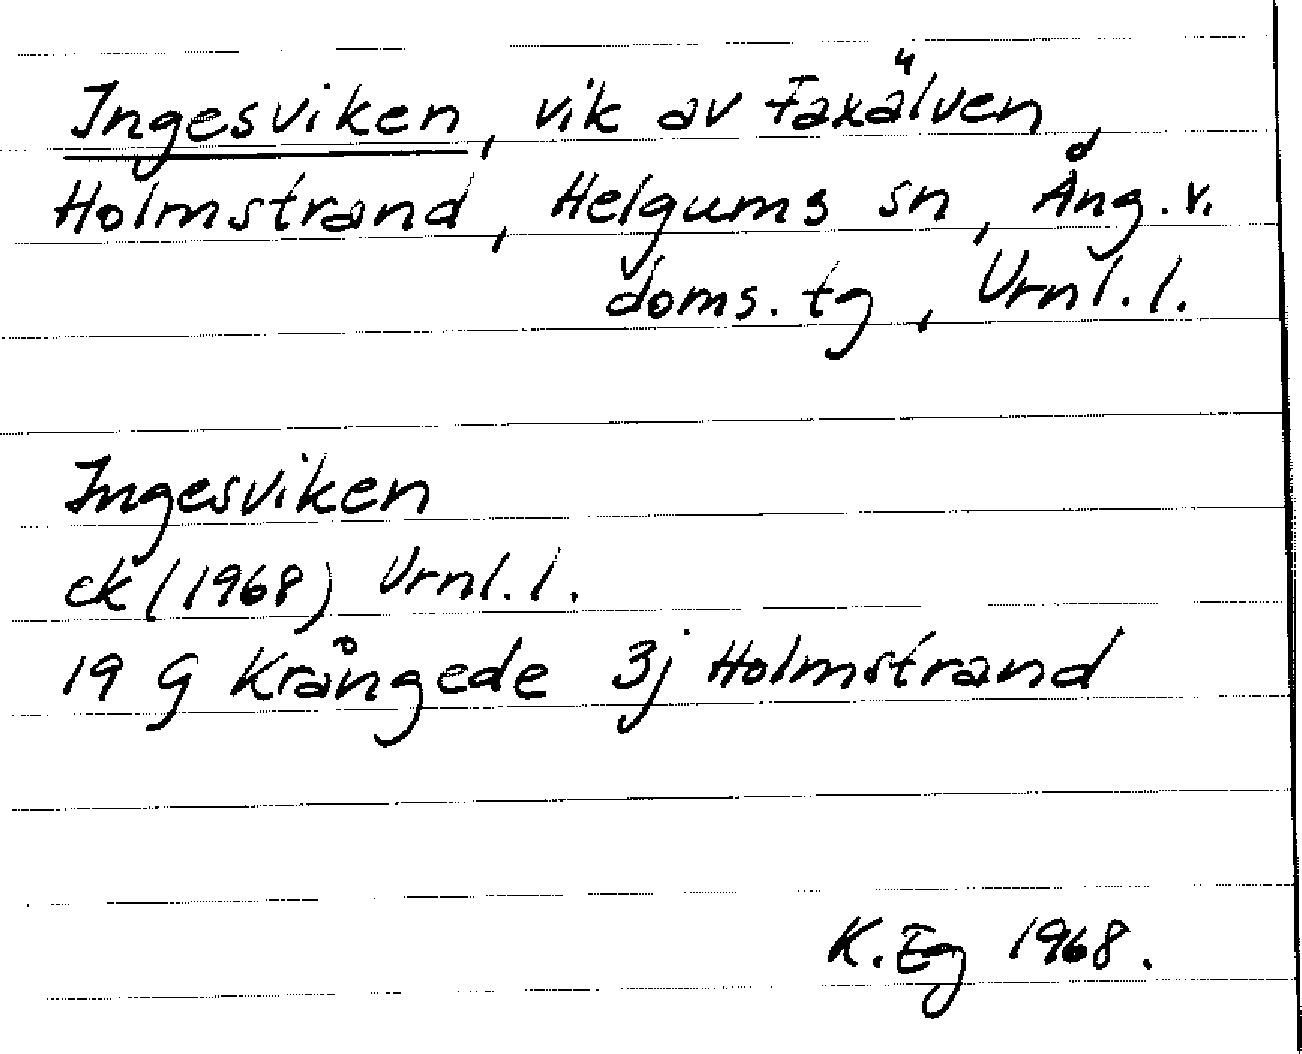 Ingesviken, vik av Faxälven,
Holmstrand, Helgums sn, Ång. v.
doms. tg, Vrnl. l.
Ingesviken
ek (1968) Vrnl. l.
19 G Krångede 3j Holmstrand
K. Eg 1968.